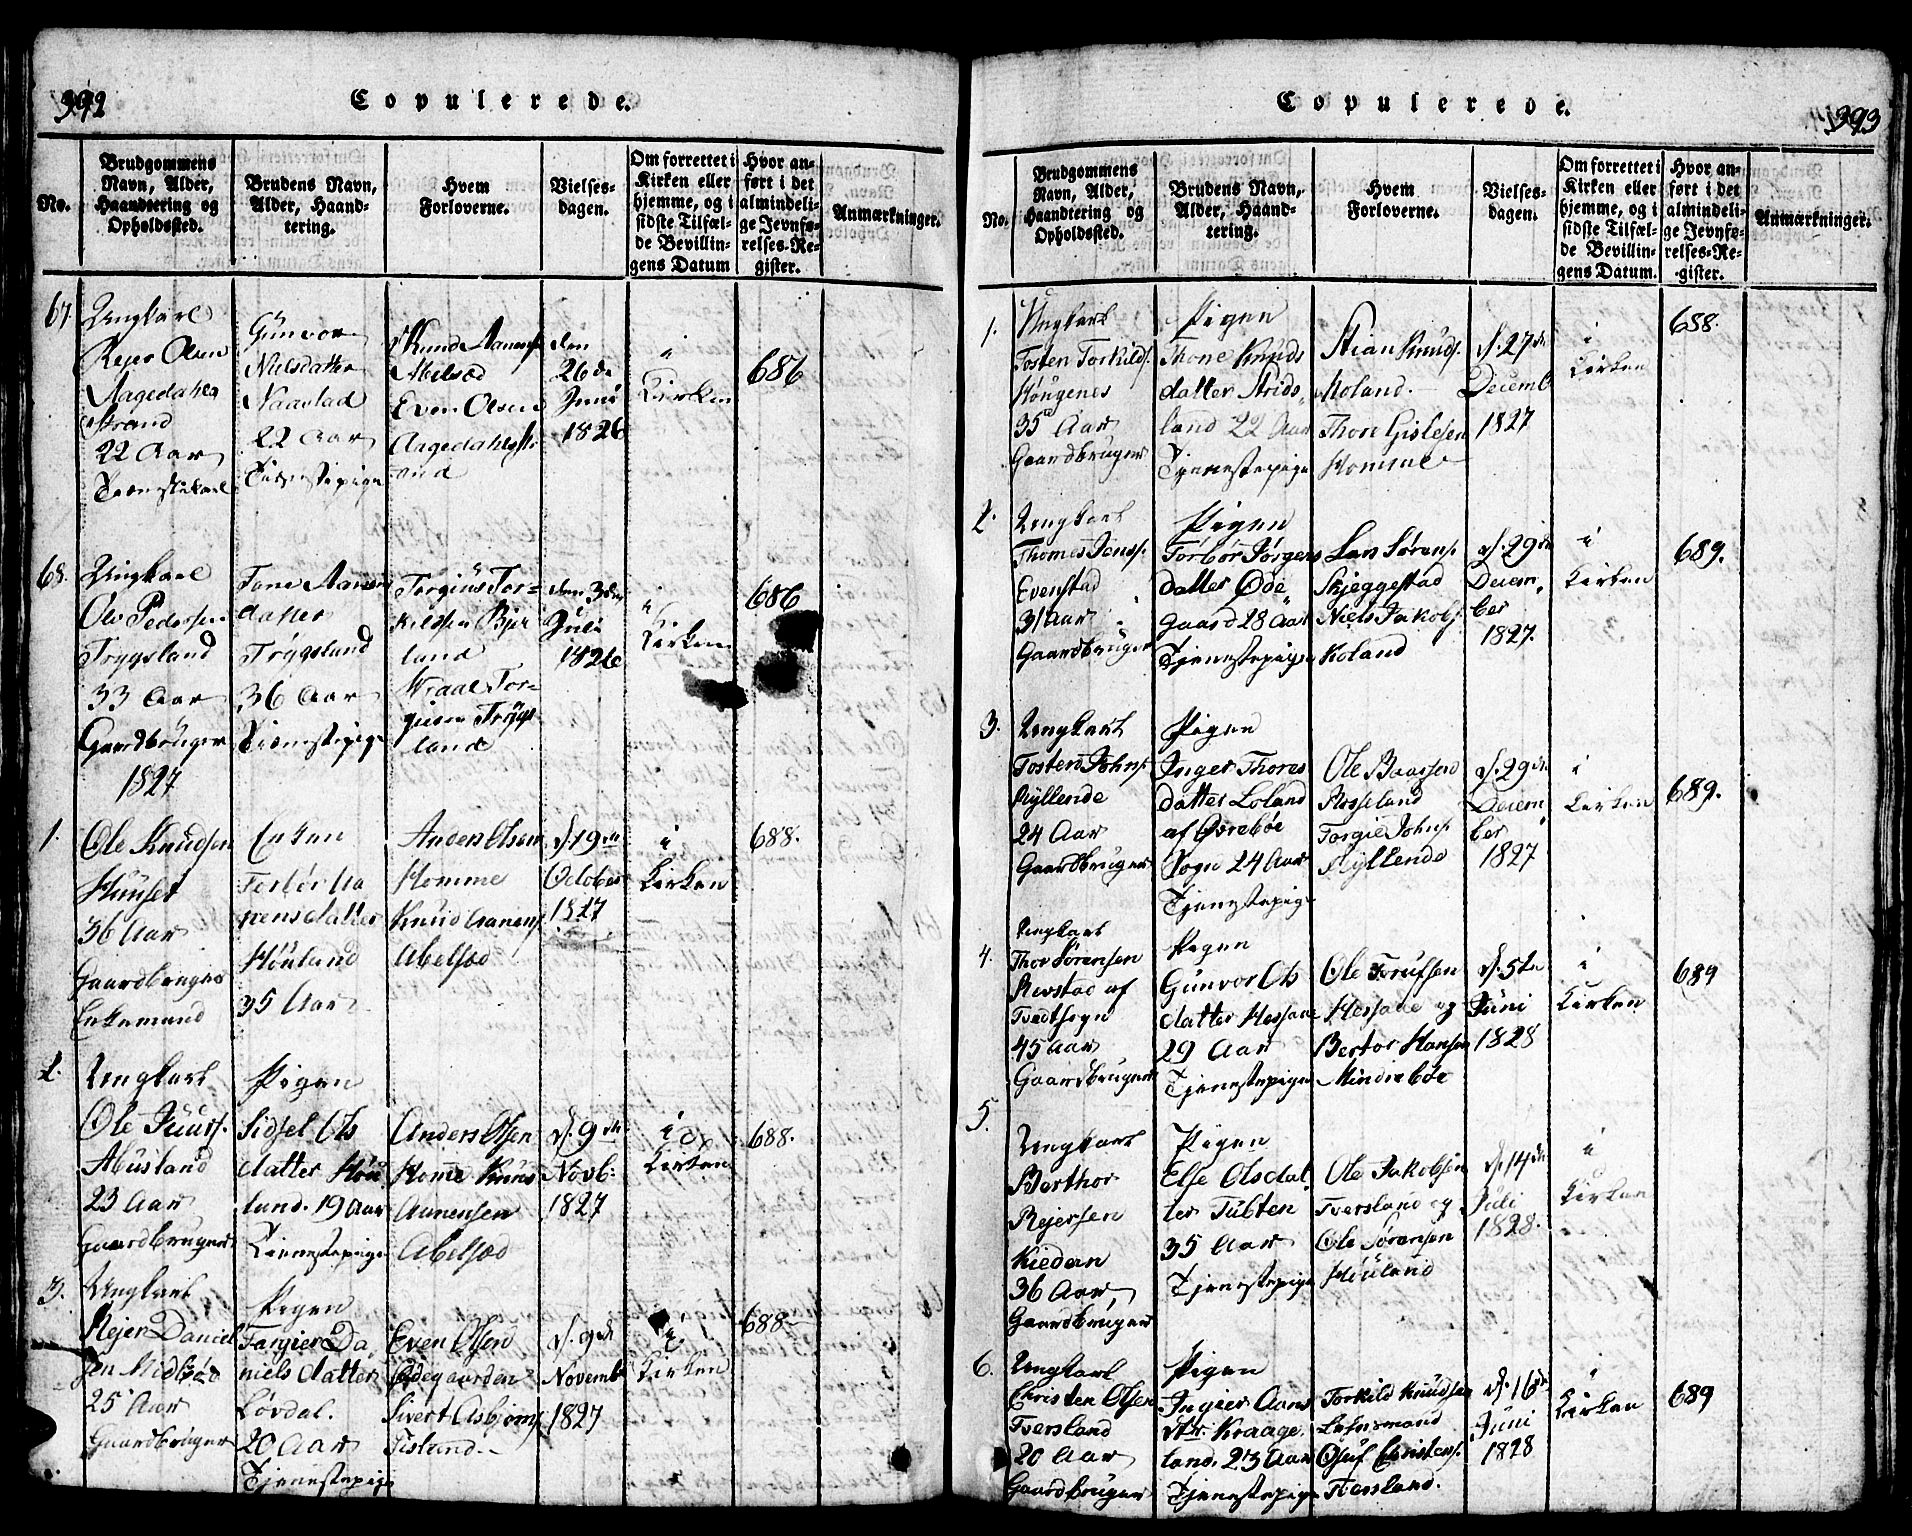 392
Copulerede.
No.
Brudgommens
Navn, Alder,
Haandtering og
Opholdssted.
Brudens Navn,
Alder, Haand-
tering.
Hvem
Forloverne.
Vielses-
dagen.
Om forrettet i
Kirken eller
hjemme, og i
sidste Tilfæl-
de Bevillin-
gens Datum
Hvor an-
ført i det
almindeli-
ge Jevnfø-
relses-Re-
gister.
Anmærkninger.
67.
Ungkarl
Rejer Olsen
Aagedahls
Strand
22 Aar
Tienestekarl
Gunvor
Nielsdatter
Naastad
22 Aar
Tienestepige
Knud Aanens
Abilsød
Even Olsen
Aagedahlsstr
and
den
26de
Juni
1826
i
Kirken
686
68.
Ungkarl
Ole Pedersen
Trygsland
33 Aar
Gaardbruger
Tone Aanen
datter
Trygsland
36 Aar
Tienestepige
Torgius Tor-
kildsen Bjur
land
Wraal Tor-
giusen Trygs
land
den 3die
Juli
1826
i
Kirken
686
1827
1.
Ole Knudsen
Huuset
36 Aar
Gaardbruger
Enkemand
Enken
Torbor Aa
nensdatter
Houland
35 Aar
Anders Olsen
Homme
Knud Aanens.
Abelsød
d. 19de
October
1827
i
Kirken
688.
2.
Ungkarl
Ole Juurs.
Abusland
23 Aar
Gaardbruger
Pigen
Sidsel Ols
datter Hou
land. 19 Aar
Tienestepige
Anders Olsen
Home Knus
Aanensen
Abelsød
d. 9de
Novb:
1827
i
Kirken
688.
3.
Ungkarl
Rejer Daniel
sen Midbød
25 Aar
Gaardbruger
Pigen
Targier Da
niels datter
Løvdal.
20 Aar
Tjenestepige
Even Olsen
Ødegaarden
Sivert Asbjorns
Sisland.
d. 9de
Novemb
1827
i
Kirken
688
393
Copulerede.
No.
Brudgommens
Navn, Alder,
Haandtering og
Opholdssted.
Brudens Navn,
Alder, Haand-
tering.
Hvem
Forloverne.
Vielses-
dagen.
Om forrettet i
Kirken eller
hjemme, og i
sidste Tilfæl-
de Bevillin-
gens Datum.
Hvor an-
ført i det
almindeli-
ge Jevnfø-
relses-Re-
gister.
Anmærkninger.
1.
Ungkarl
Tosten Torkilds.
Høugenes
35 Aar
Gaardbruger
Pigen
Thone Knuds
datter Strids
land 22 Aar
Tjenestepige
Stian Knuds.
Holand.
Thore Gislesen
Homme
d. 27de
Decemb
1827
i
Kirken
688.
2.
Ungkarl
Thomes Jenss.
Evenstad
31 Aar
Gaardbruger
Pigen
Torbor Jørgens
datter Øde
gaard 28 Aar
Tjenestepige
Lars Sørens.
Skjeggestad
Niels Jakobs.
Koland
d. 29de
Decem
ber
1827.
i
Kirken
689.
3.
Ungkarl
Tosten Johns.
Kyllende
24 Aar
Gaardbruger
Pigen
Inger Thores
datter Loland
af Øvrebøe
Sogn 24 Aar
Tjenestepige
Ole Baarsen
Rosseland
Torgie Johns.
Kyllende
d. 29de
Decem
ber
1827
i
Kirken
689.
4.
Ungkarl
Thor Sørensen
Revstad af
Tvedtsogn
45 Aar
Gaardbruger
Pigen
Gunvor Ols
datter Hessaae
29 Aar
Tjenestepige
Ole Torufsen
Hessaae og
Bertor Hansen
Mindrebøe
d. 5te
Juni
1828
i
Kirken
689
5.
Ungkarl
Berthor
Rejersen
Kiedern
36 Aar,
Gaardbruger
Pigen
Else Olsdat
ter Tubten
35 Aar
Tjenestepige
Ole Jakobsen
Tversland og
Ole Sørensen
Høuland
d. 14de
Juli
1828.
i
Kirken
6.
Ungkarl
Christen Olsen
Tversland
20 Aar
Gaardbruger
Pigen
Ingier Aans
dtr. Kraage
land. 23 Aar
Tjenestepige
Torkild Knudsen
Lehnsmand
Oluf Christens.
Tversland.
d. 16de
Juni
1828
i
Kirken
689